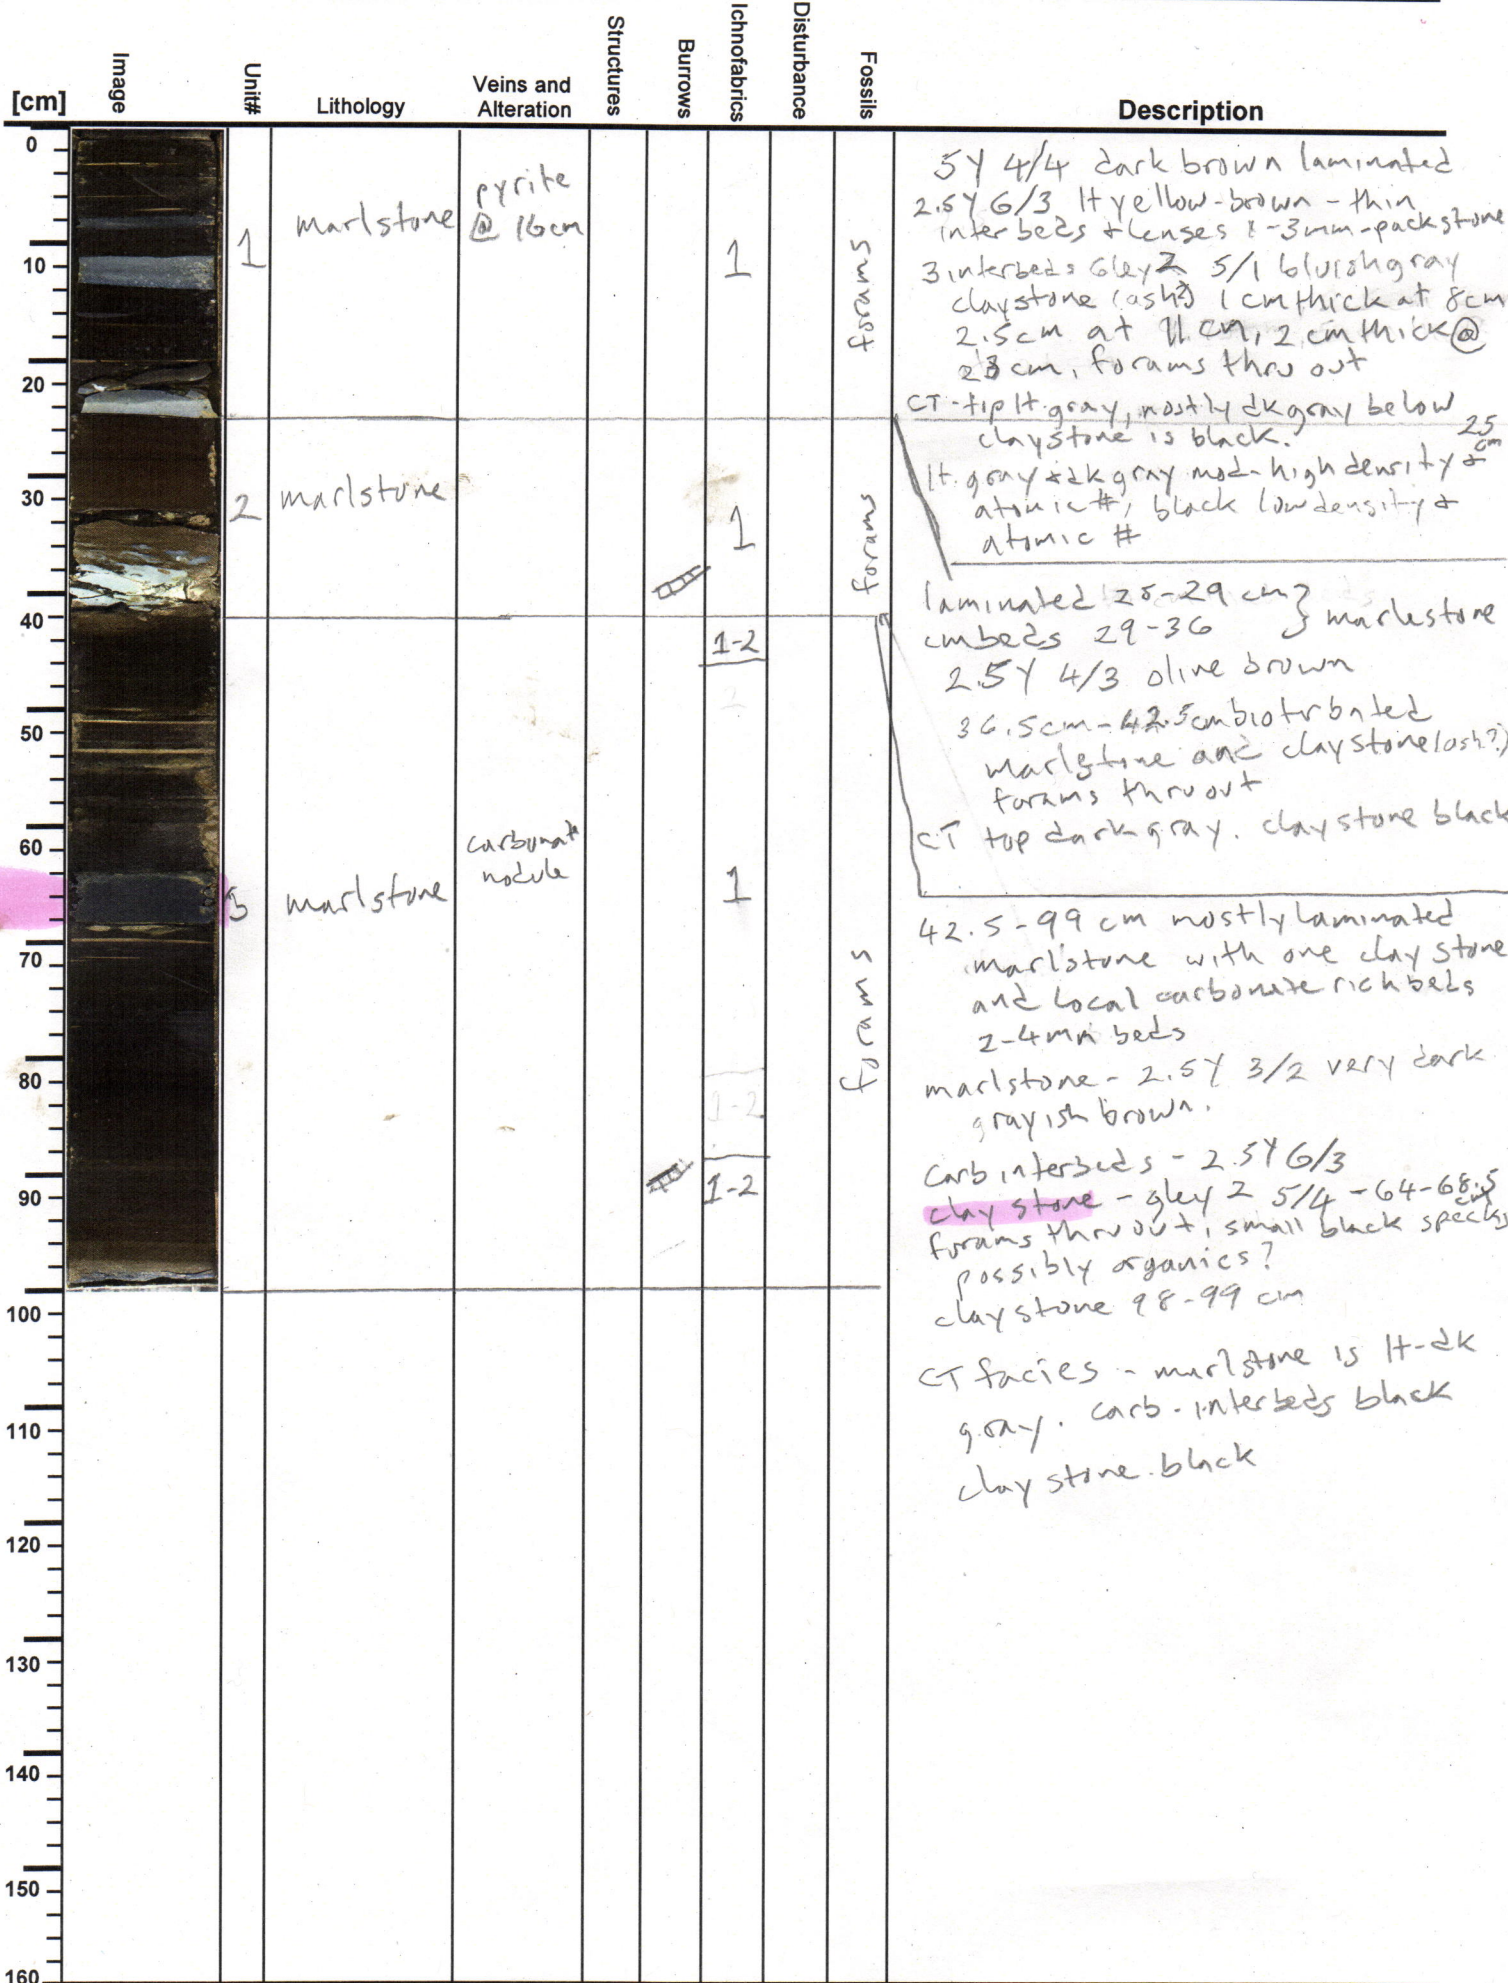 [cm]
Image
Unit#
Lithology
Veins and
Alteration
Structures
Burrows
Ichnofabrics
Disturbance
Fossils
Description
0
10
20
30
40
50
60
70
80
90
100
110
120
130
140
150
160
1
marlstone
pyrite
@ 16cm
1
forams
2
marlstone
1
forams
1-2
3
marlstone
carbonate
nodule
1
forams
1-2
1-2
5Y 4/4 dark brown laminated
2.5Y 6/3 lt yellow-brown - thin
interbeds + lenses 1-3mm-packstone
3 interbeds Gley 2 5/1 bluish gray
claystone (ash?) 1 cm thick at 8cm
2.5cm at 11 cm, 2 cm thick @
23 cm, forams thru out
CT - tip lt. gray, mostly dk gray below
claystone is black. 25
cm
lt. gray + dk gray mod-high density &
atomic #, black low density &
atomic #
laminated 25-29 cm } marlestone
cmbeds 29-36
2.5Y 4/3 olive brown
36.5cm-42.5cm bioturbated
marlstone and claystone (ash?)
forams thruout
CT top dark gray. claystone black
42.5-99 cm mostly laminated
marlstone with one clay stone
and local carbonate rich beds
2-4mm beds
marlstone - 2.5Y 3/2 very dark
grayish brown.
Carb interbeds - 2.5Y 6/3
clay stone - gley 2 5/4 - 64-68.5
cm
forams thru out, small black specks
possibly organics?
claystone 98-99 cm
CT facies - marlstone is lt-dk
gray. carb-interbeds black
clay stone. black